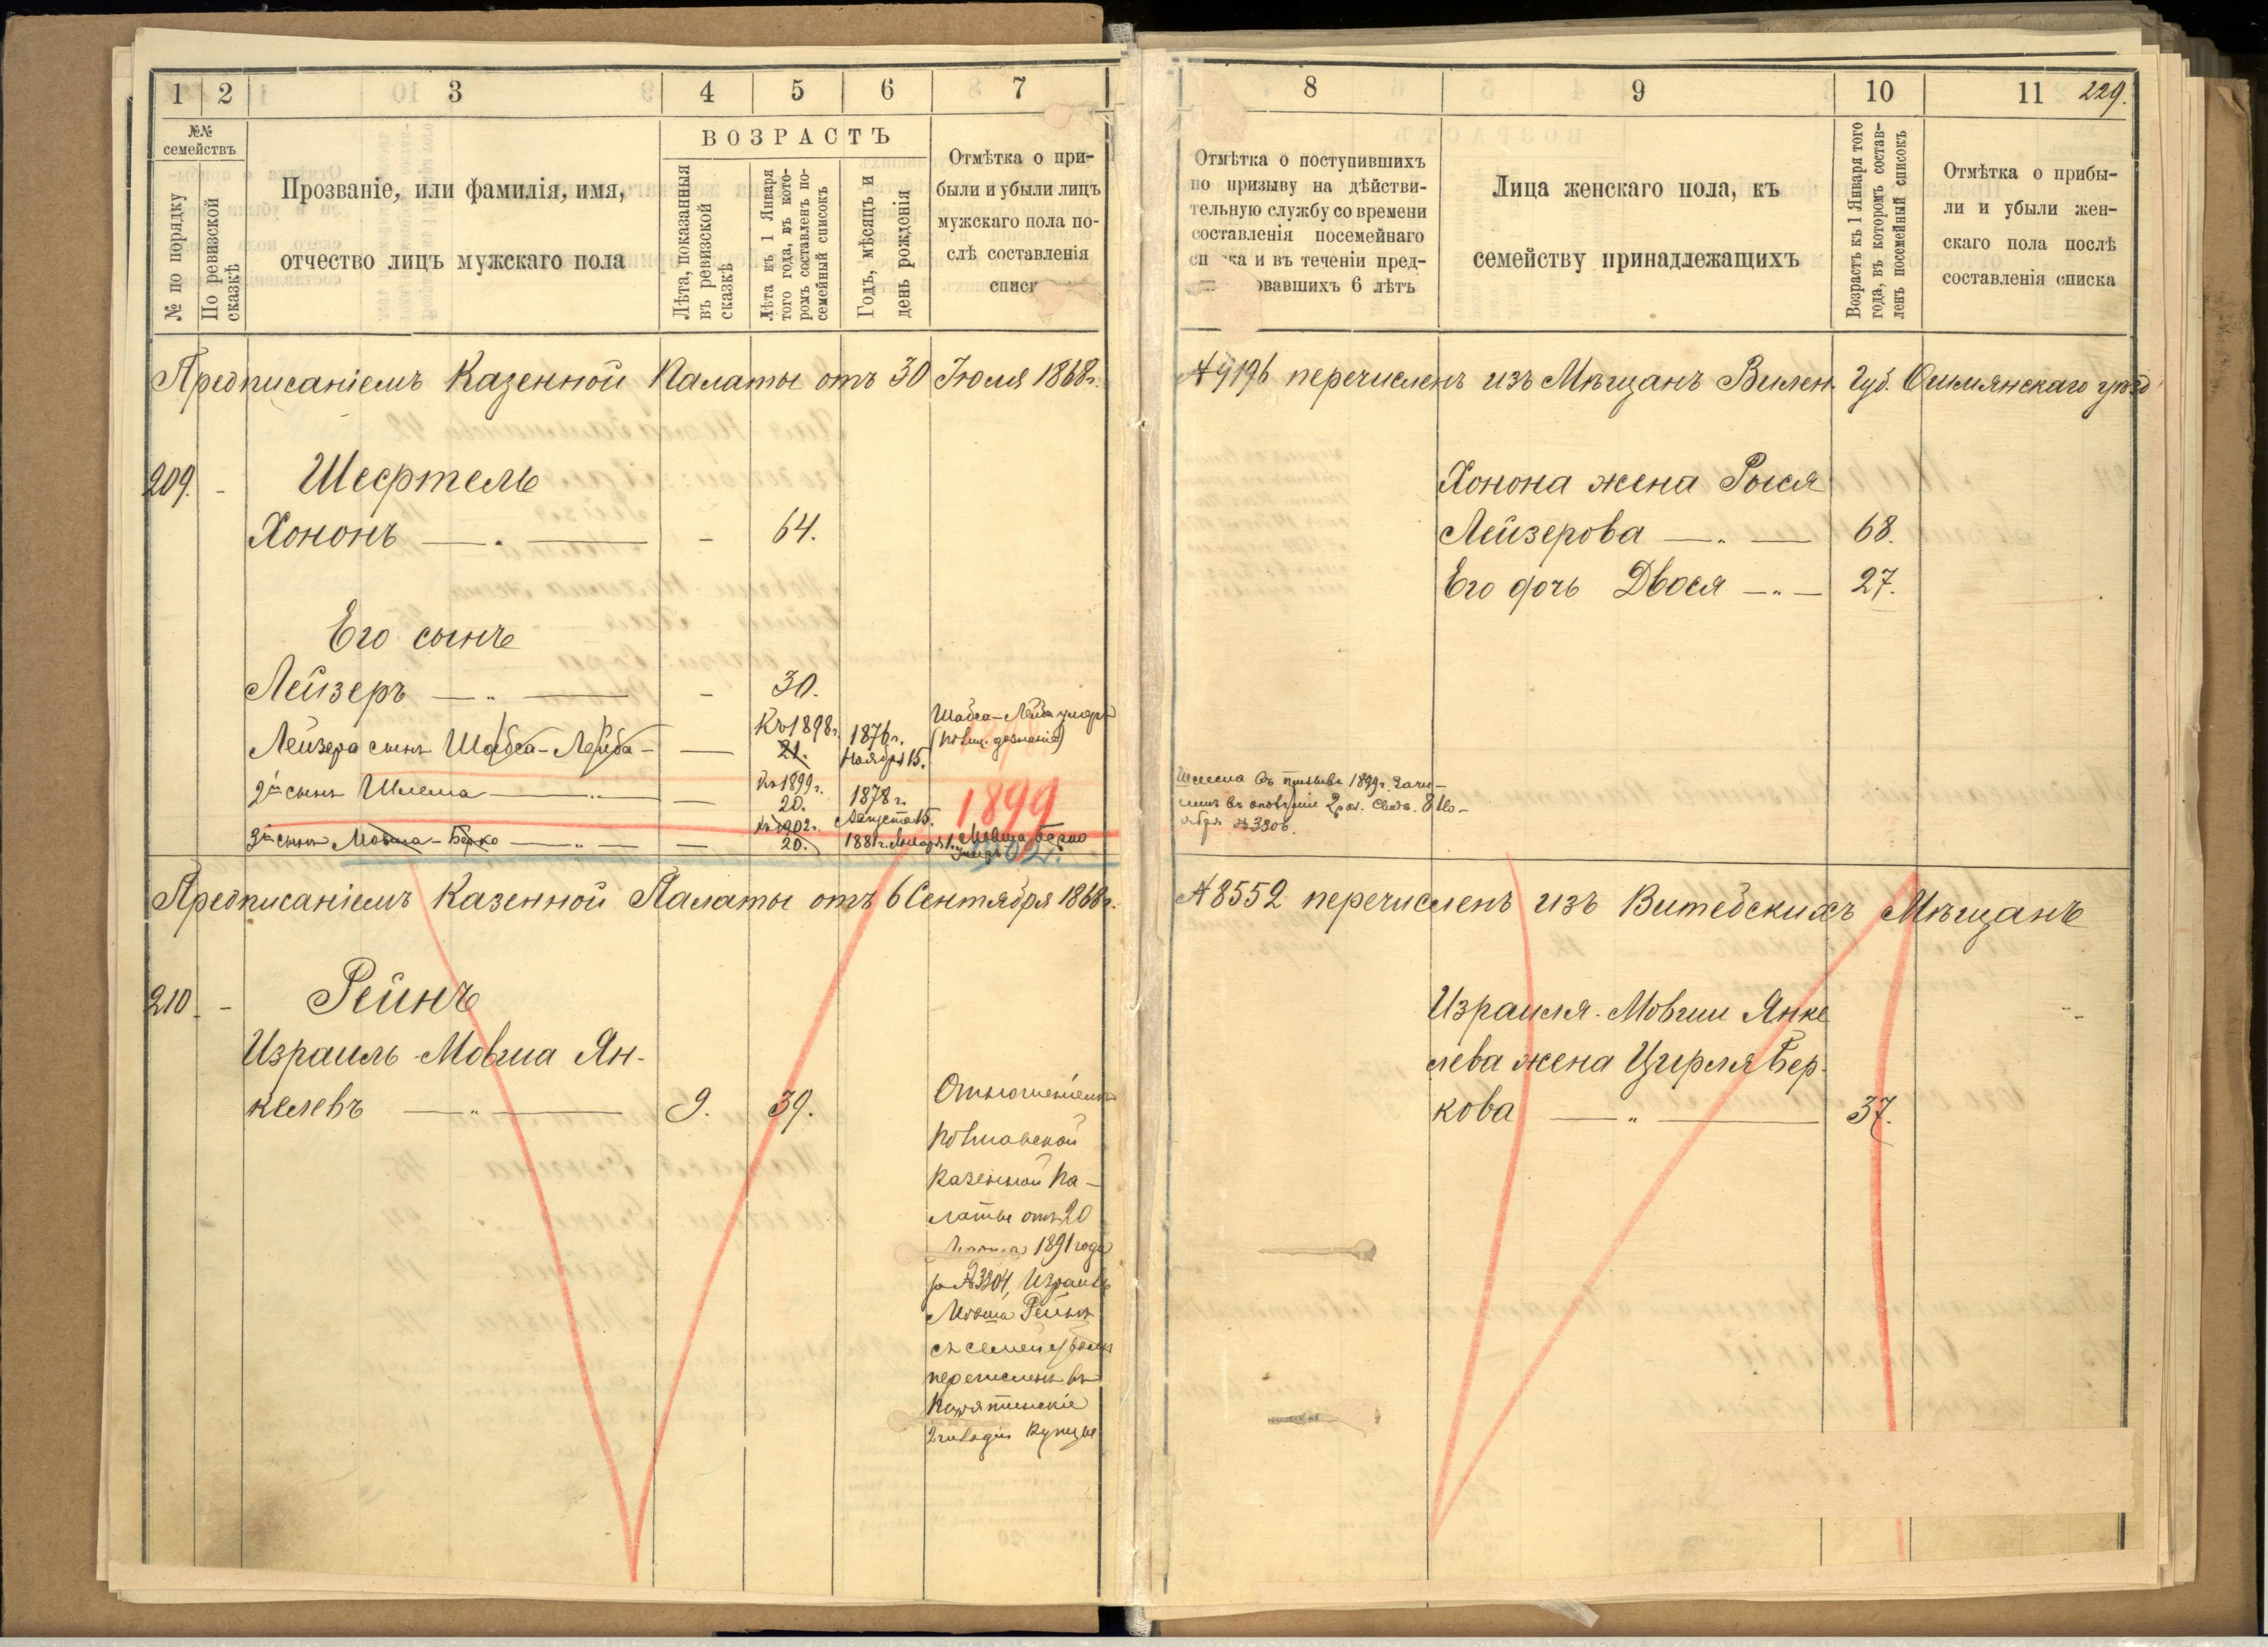 1 2 3 4 5 6 7
№№ семействъ
№ по порядку
По ревизской сказкѣ
Прозваніе, или фамилія, имя,
отчество лицъ мужскаго пола
ВОЗРАСТЪ
Лѣта, показанныя
въ ревизской
сказкѣ
Лѣта къ 1 Января
того года, въ кото-
ромъ составленъ по-
семейный списокъ
Годъ, мѣсяцъ и
день рожденія
Отмѣтка о при-
были и убыли лицъ
мужскаго пола по-
слѣ составленія
Предписаніемъ Казенной Палаты отъ 30 Іюля 1868г.
209. - Шефтель
Хононъ — „ — - 64.
Его сынъ
Лейзеръ — „ — - 30.
Лейзера сынъ Шабса-Лейба - — Къ 1898г. 21. 1876г. Ноября 15. Шабса-Лейба умеръ
2й сынъ Шлема — „ — — Къ 1899г. 20. 1878г. Августа 15. 1899
3й сынъ Мовша-Берко — „ — — Къ 1902г. 20. 1881г. Января 1. Мовша Берко
умеръ
Предписаніемъ Казенной Палаты отъ 6 Сентября 1868г.
210. - Рейнъ
Израиль-Мовша Ян-
келевъ — „ — 9. 39.
Отношеніемъ
Казенной Па-
латы отъ 20
1891 года
за №3304, Израиль
Мовша Рейнъ
съ семействомъ
перечисленъ въ
2 гильдіи Купцы
8 9 10 11 229.
Отмѣтка о поступившихъ
по призыву на дѣйстви-
тельную службу со времени
составленія посемейнаго
и въ теченіи пред-
6 лѣтъ
Лица женскаго пола, къ
семейству принадлежащихъ
Возрастъ къ 1 Января того
года, въ которомъ состав-
ленъ посемейный списокъ
Отмѣтка о прибы-
ли и убыли жен-
скаго пола послѣ
составленія списка
№9196 перечисленъ изъ Мѣщанъ Вилен. Губ. Ошмянскаго уѣзд
Хонона жена Рыся
Лейзерова — „ — 68.
Его дочь Двося — „ — 27.
Шлема въ призывъ 1899г. зачи-
сленъ въ ополченіе 2 раз. Свид. 8 Но-
ября №3306.
№8552 перечисленъ изъ Витебскихъ Мѣщанъ
Израиля-Мовши Янке
лева жена Цирля Бер-
кова — „ — 37.